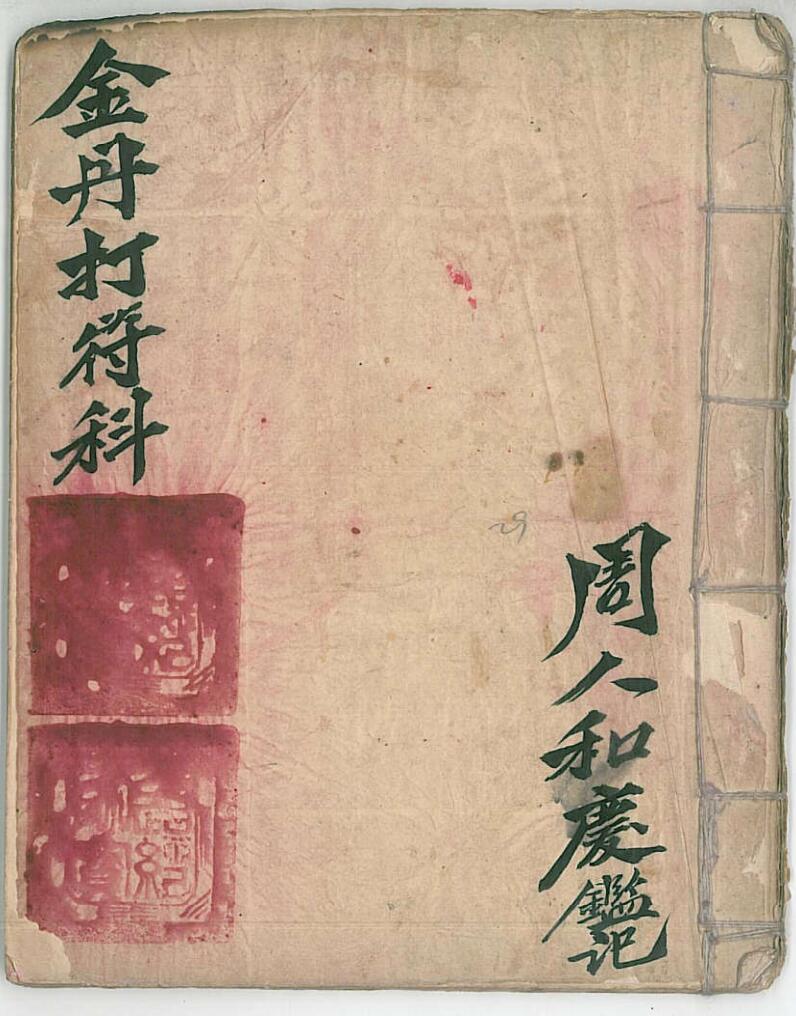 周人和慶鑑記
金丹打符科
29